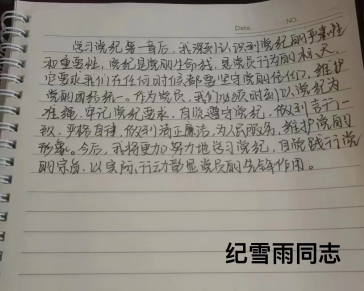 Date. NO.
学习党纪第一章后，我深刻认识到党纪的严肃性
和重要性，党纪是党的生命线，是党员行为的标尺，
它要求我们在任何时候都要坚守党的信仰，维护
党的团结统一。作为党员，我们必须时刻以党纪为
准绳，牢记党纪要求，自觉遵守党纪，做到言行一
致，严格自律，做到清正廉洁，为人民服务，维护党的
形象。今后，我将更加努力地学习党纪，自觉践行党
的宗旨，以实际行动彰显党员的先锋作用。
纪雪雨同志